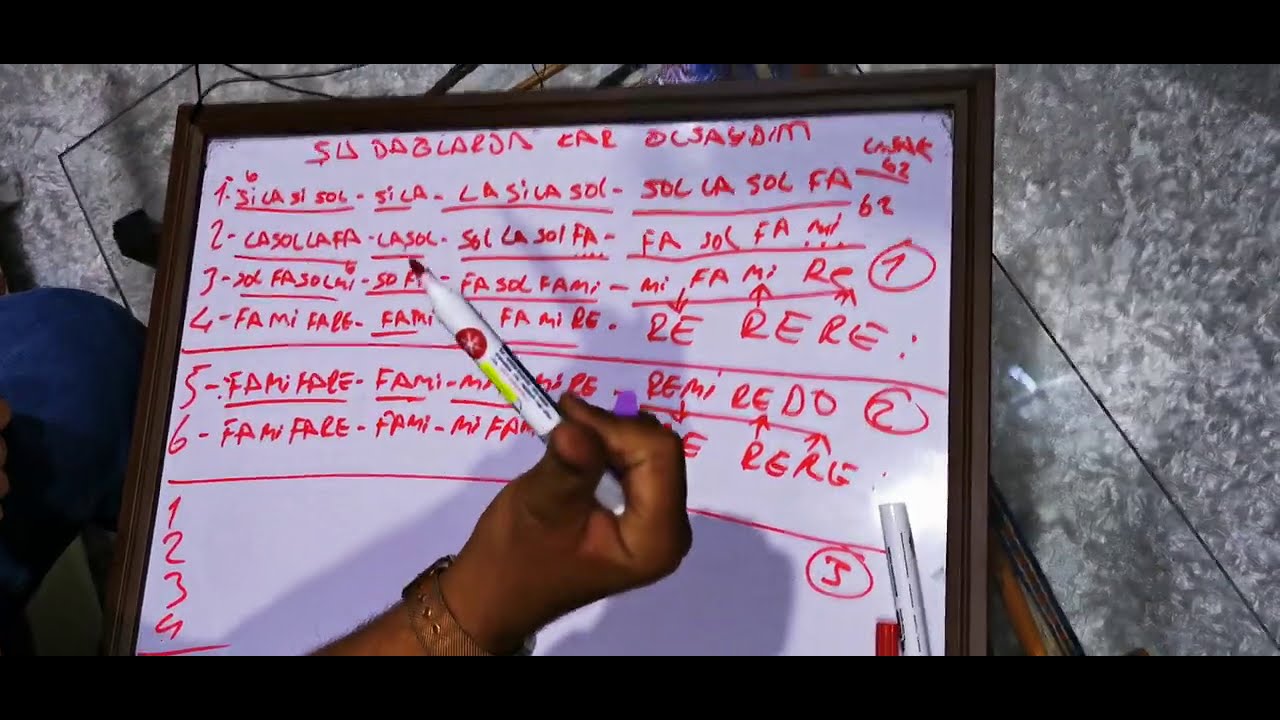 ŞU DAĞLARDA KAR OLSAYDIM
1- Sİ LA Sİ SOL - Sİ LA - LA Sİ LA SOL - SOL LA SOL FA
6
62
62
2- LASOLLAFA - LASOL - SOL LA SOL FA - FA SOL FA Mİ
3- SOL FA SOL Mİ - FA SOL FA Mİ - Mİ FA Mİ RE 1
4- FA Mİ FA RE - FA Mİ FA Mİ RE - RE RE RE :
5- FAMİFARE - FAMİ - REMİ REDO 2
6- FAMİFARE - FAMİ - Mİ RERE :
1
2
3
4
3